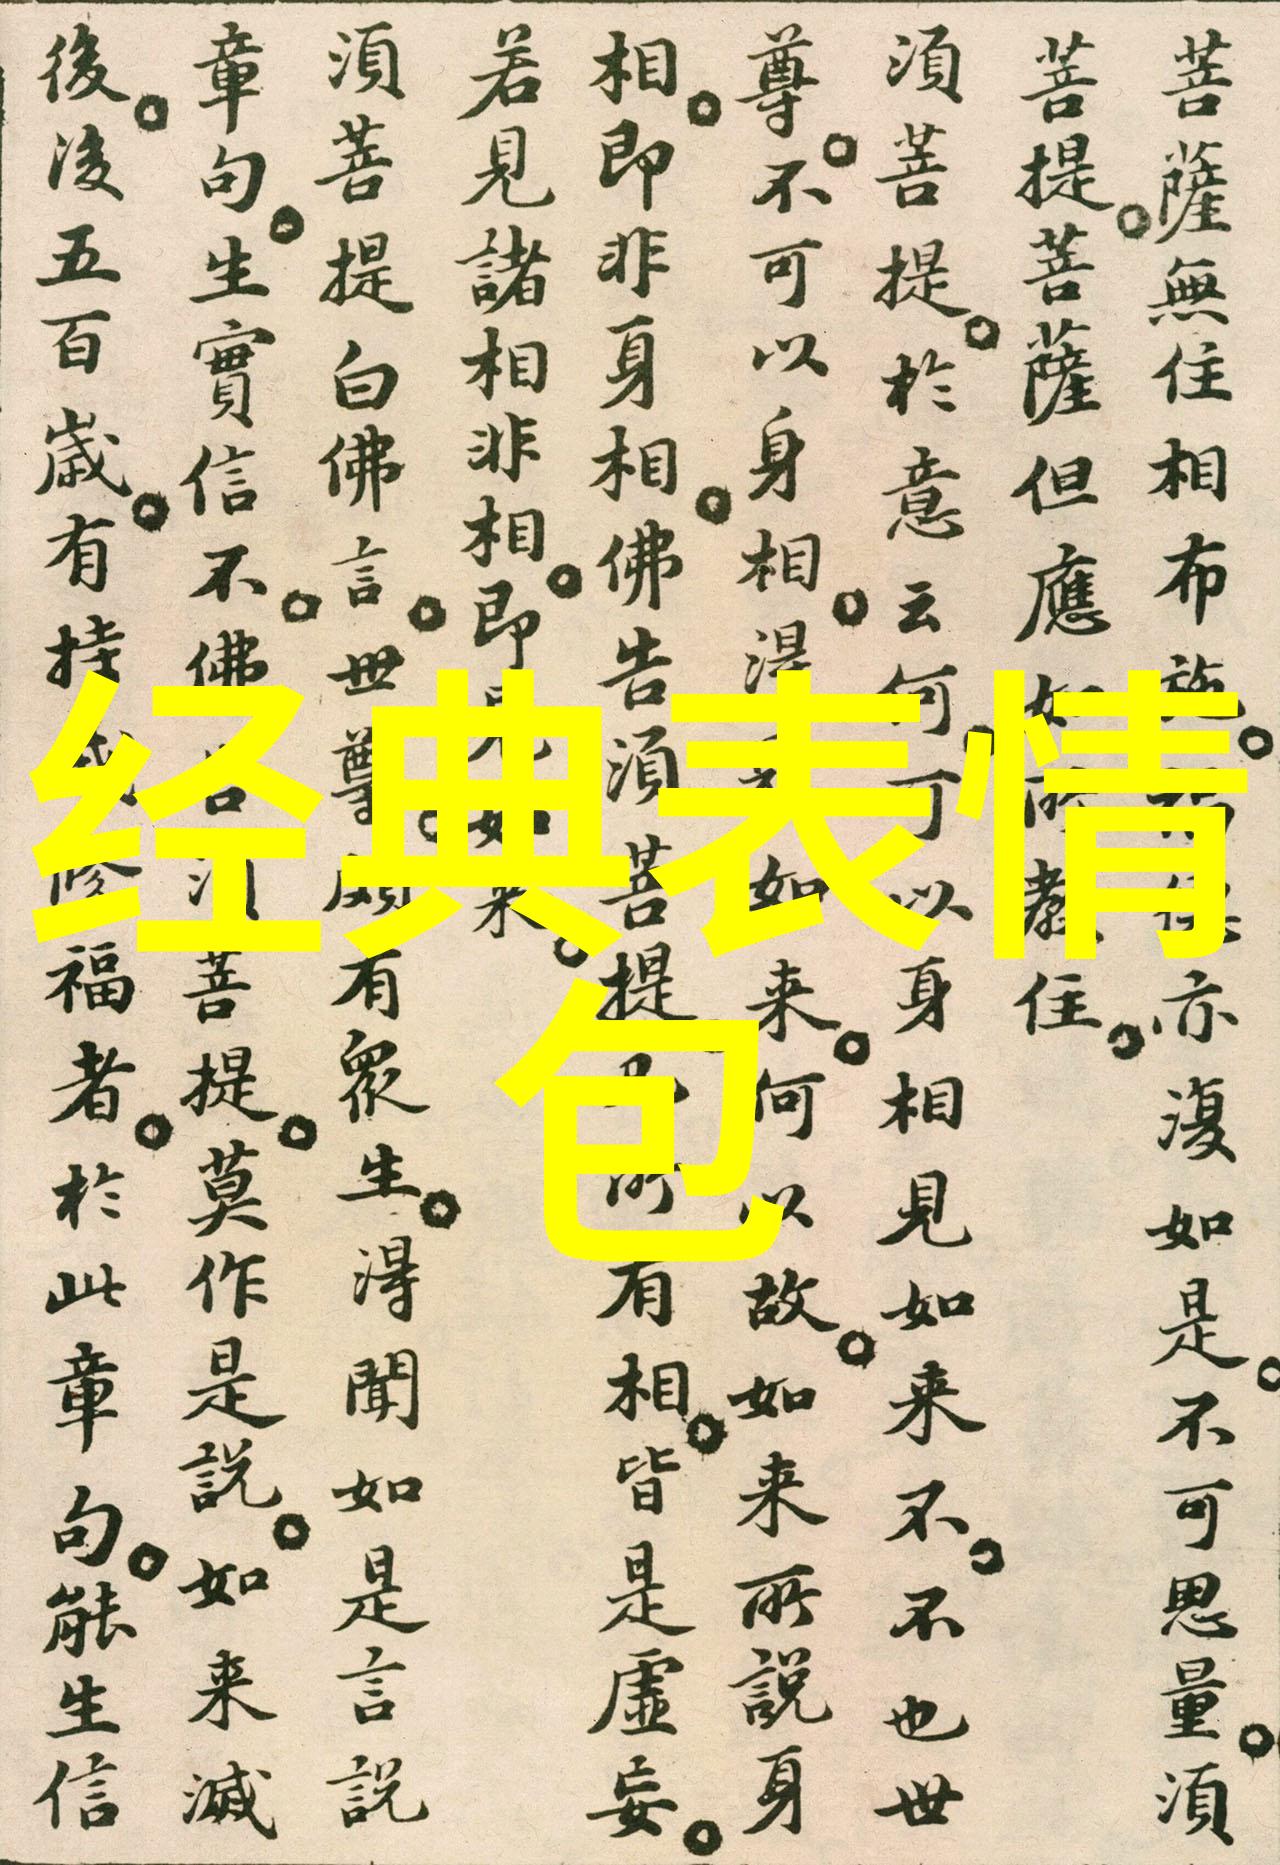 菩薩無住相布施福德亦復如是不可思量須
菩提菩薩但應如所教住
須菩提於意云何可以身相見如来不不也世
尊不可以身相得如来何以故如来所説身
相即非身相佛告須菩提凡所有相皆是虛妄
若見諸相非相即見如来
須菩提白佛言世尊頗有眾生得聞如是言説
章句生實信不佛告須菩提莫作是説如来滅
後後五百歲有持戒修福者於此章句能生信
经典表情
包